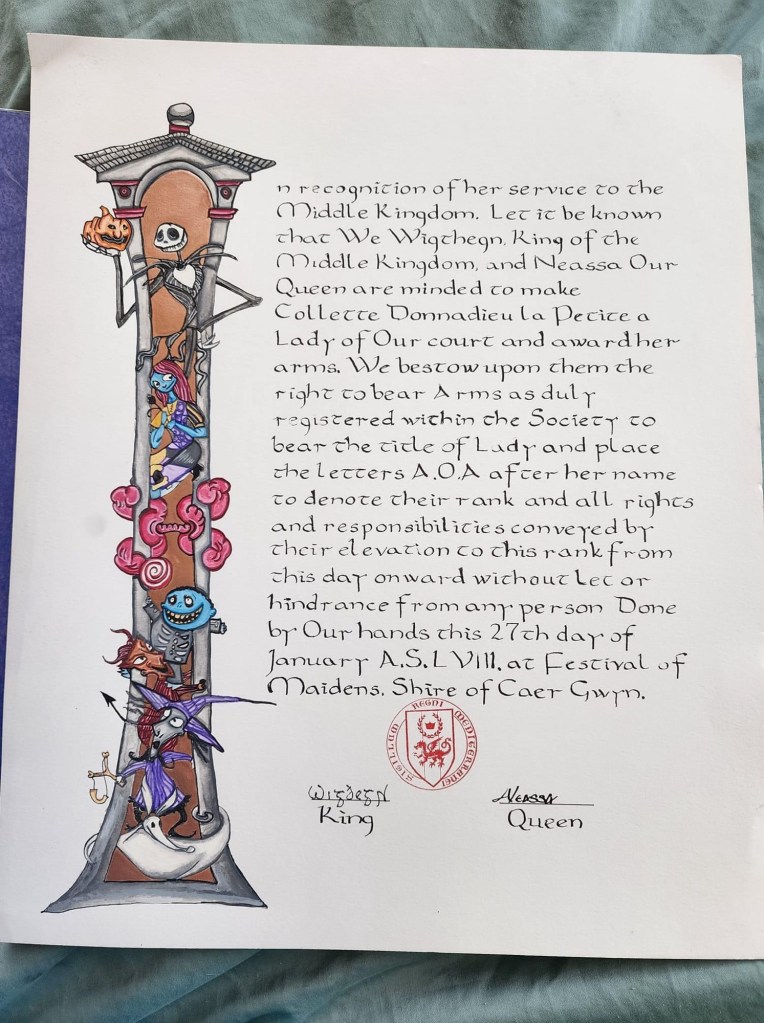 n recognition of her service to the
Middle Kingdom. Let it be known
that We Wigthegn, King of the
Middle Kingdom, and Neassa Our
Queen are minded to make
Collette Donnadieu la Petite a
Lady of Our court and award her
arms. We bestow upon them the
right to bear Arms as duly
registered within the Society to
bear the title of Lady and place
the letters A.O.A after her name
to denote their rank and all rights
and responsibilities conveyed by
their elevation to this rank from
this day onward without let or
hindrance from any person Done
by Our hands this 27th day of
January A.S. LVIII. at Festival of
Maidens. Shire of Caer Gwyn.
SIGILLUM REGNI MEDITERRANEI
Wigðegn Neassa
King Queen